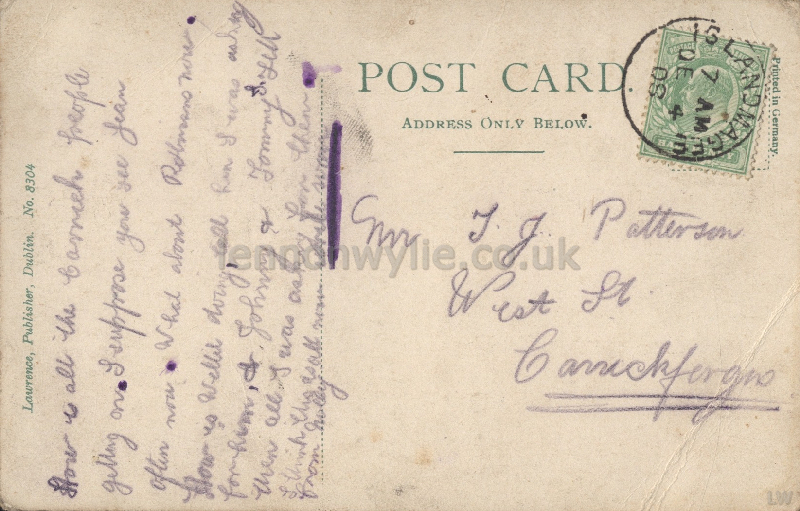 POST CARD.
ADDRESS ONLY BELOW.
Printed in Germany.
ISLANDMAGEE
7 AM
DE 4
08
Lawrence, Publisher, Dublin. No. 8304
How is all the Carrick people
getting on I suppose you see Jean
often now. What about Robinans now.
How is Willie doing, tell him I was asking
for him, & Johnny & Tommy & tell
them all I was asking for them
I think this is all now write soon
from Molly
Mr T. J. Patterson
West St.
Carrickfergus
lennonwylie.co.uk
LW